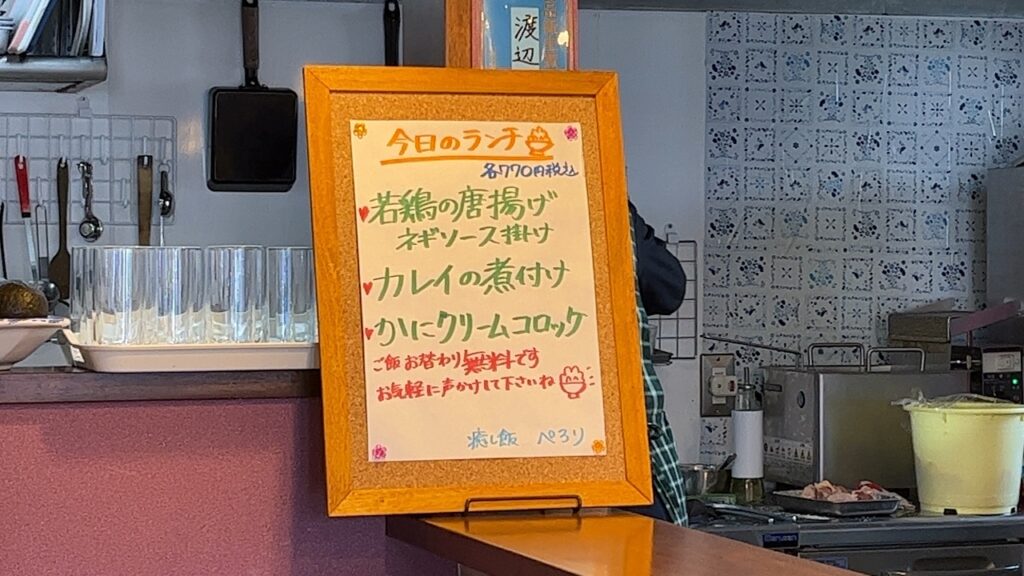 渡辺
今日のランチ
各770円税込
若鶏の唐揚げ
ネギソース掛け
カレイの煮付け
かにクリームコロッケ
ご飯お替わり無料です
お気軽に声かけして下さいね
癒し飯 ぺろり